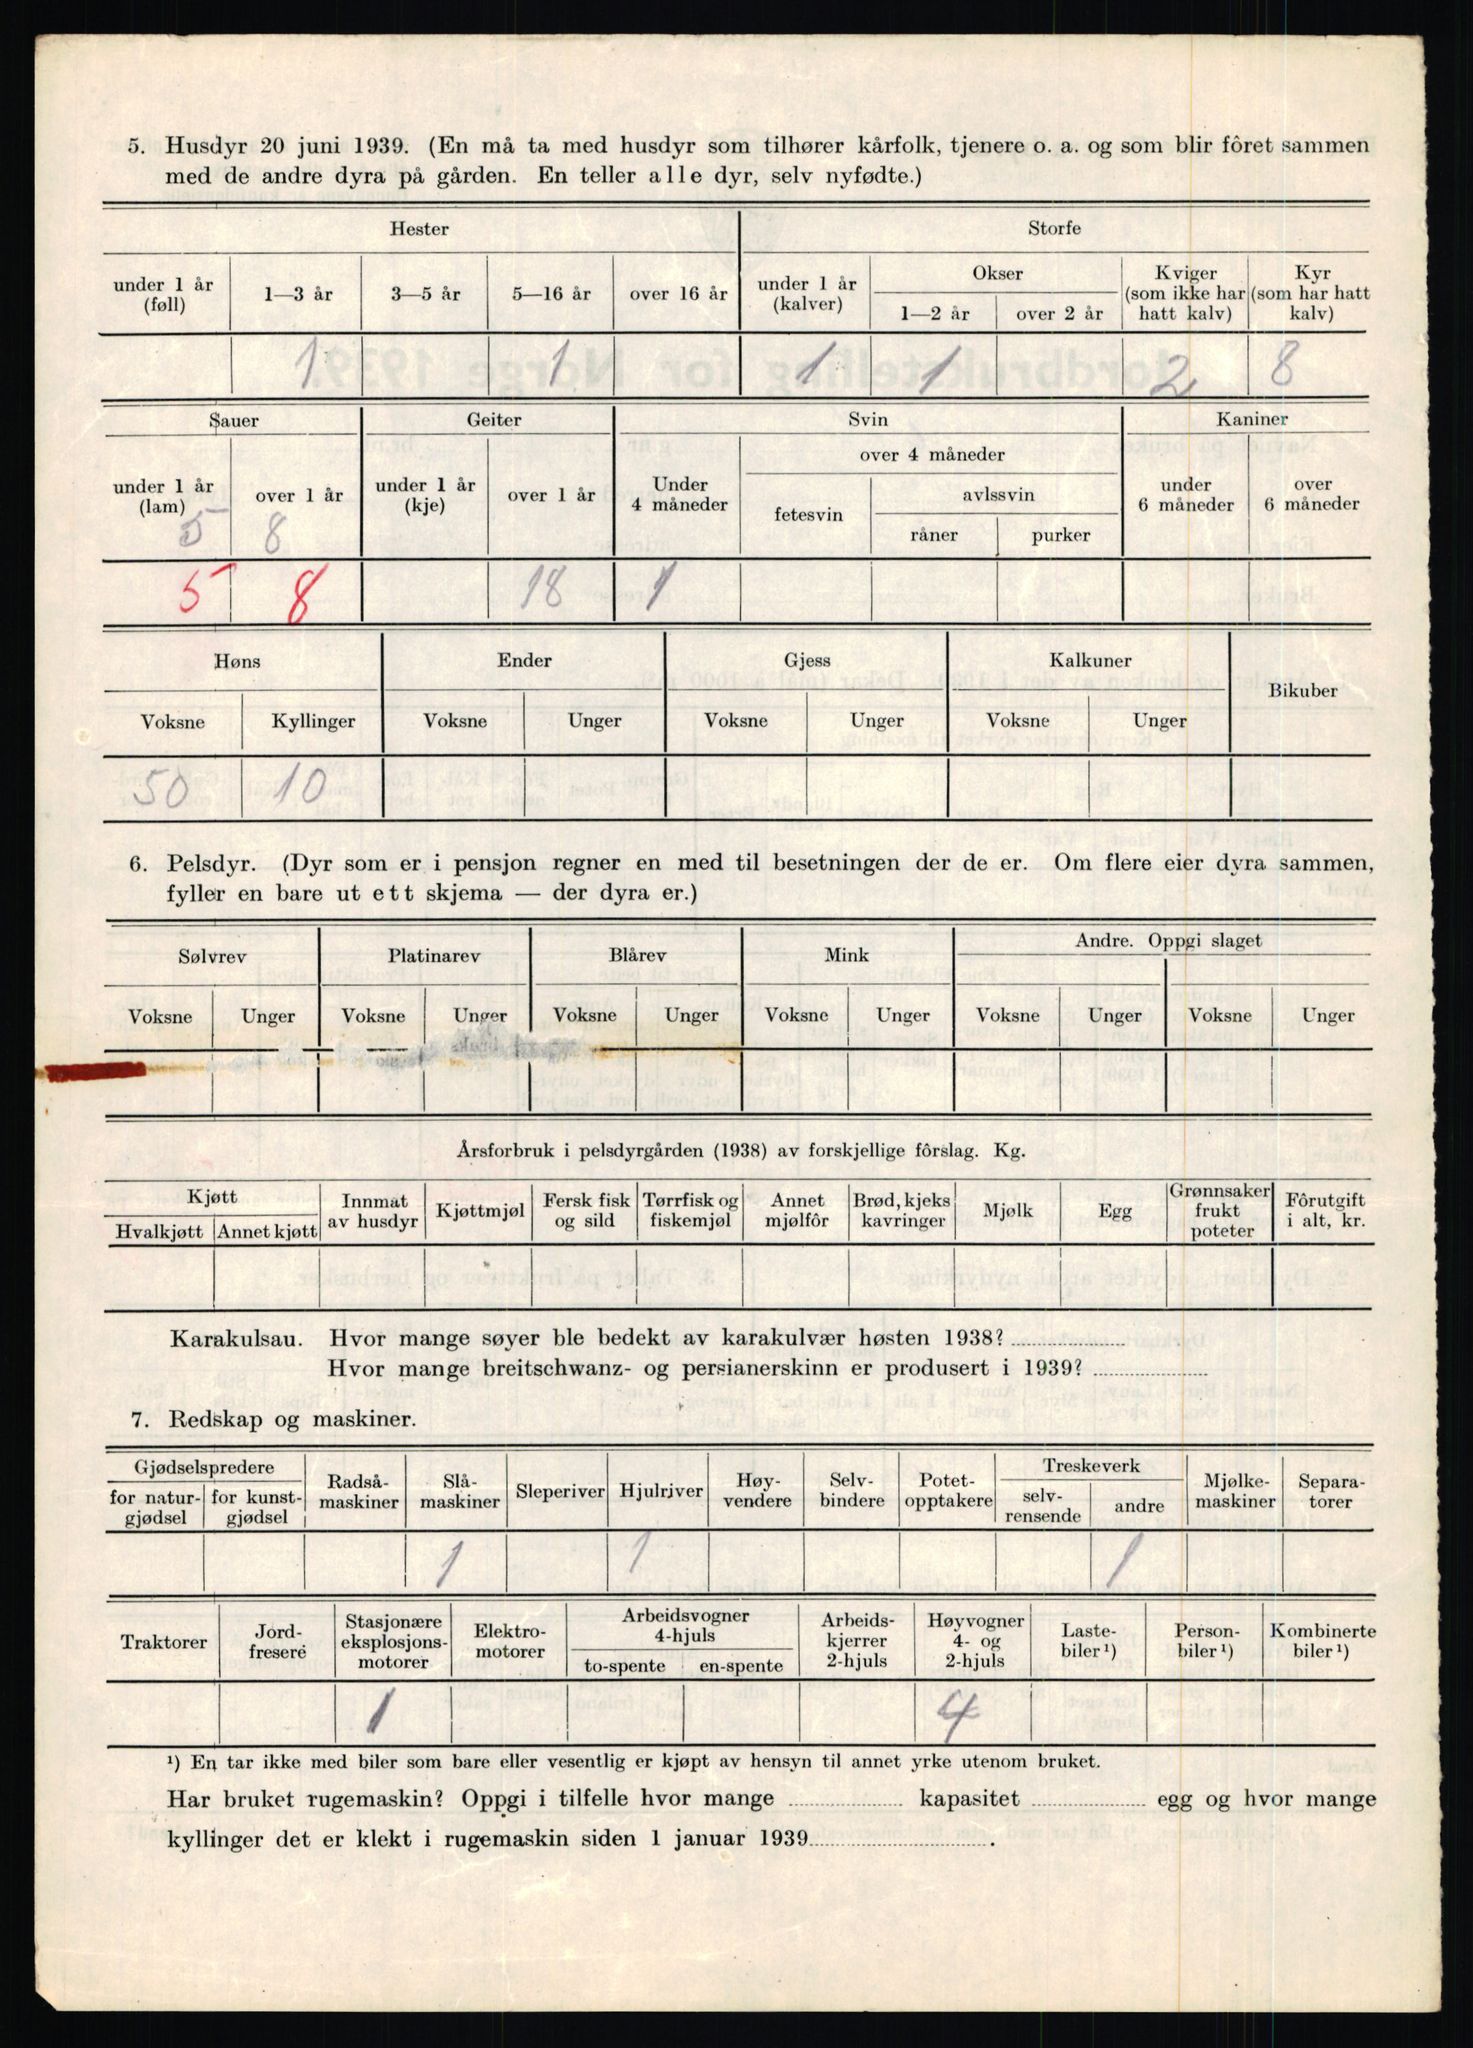 5. Husdyr 20 juni 1939. (En må ta med husdyr som tilhører kårfolk, tjenere o. a. og som blir fôret sammen
med de andre dyra på gården. En teller alle dyr, selv nyfødte.)
Hester Storfe
under 1 år (føll) 1—3 år 3—5 år 5—16 år over 16 år under 1 år (kalver) Okser 1—2 år over 2 år Kviger (som ikke har hatt kalv) Kyr (som har hatt kalv)
1 1 1 1 2 8
Sauer Geiter Svin Kaniner
under 1 år (lam) over 1 år under 1 år (kje) over 1 år Under 4 måneder over 4 måneder fetesvin avlssvin råner purker under 6 måneder over 6 måneder
5 8
5 8 18 1
Høns Ender Gjess Kalkuner Bikuber
Voksne Kyllinger Voksne Unger Voksne Unger Voksne Unger
50 10
6. Pelsdyr. (Dyr som er i pensjon regner en med til besetningen der de er. Om flere eier dyra sammen,
fyller en bare ut ett skjema — der dyra er.)
Sølvrev Platinarev Blårev Mink Andre. Oppgi slaget
Voksne Unger Voksne Unger Voksne Unger Voksne Unger Voksne Unger Voksne Unger
Årsforbruk i pelsdyrgården (1938) av forskjellige fôrslag. Kg.
Kjøtt Hvalkjøtt Annet kjøtt Innmat av husdyr Kjøttmjøl Fersk fisk og sild Tørrfisk og fiskemjøl Annet mjølfôr Brød, kjeks kavringer Mjølk Egg Grønnsaker frukt poteter Fôrutgift i alt, kr.
Karakulsau. Hvor mange søyer ble bedekt av karakulvær høsten 1938?
Hvor mange breitschwanz- og persianerskinn er produsert i 1939?
7. Redskap og maskiner.
Gjødselspredere for natur-gjødsel for kunst-gjødsel Radså-maskiner Slå-maskiner Sleperiver Hjulriver Høy-vendere Selv-bindere Potet-opptakere Treskeverk selv-rensende andre Mjølke-maskiner Separa-torer
1 1 1
Traktorer Jord-fresere Stasjonære eksplosjons-motorer Elektro-motorer Arbeidsvogner 4-hjuls to-spente en-spente Arbeids-kjerrer 2-hjuls Høyvogner 4- og 2-hjuls Laste-biler ¹) Person-biler ¹) Kombinerte biler ¹)
1 4
¹) En tar ikke med biler som bare eller vesentlig er kjøpt av hensyn til annet yrke utenom bruket.
Har bruket rugemaskin? Oppgi i tilfelle hvor mange kapasitet egg og hvor mange
kyllinger det er klekt i rugemaskin siden 1 januar 1939 .